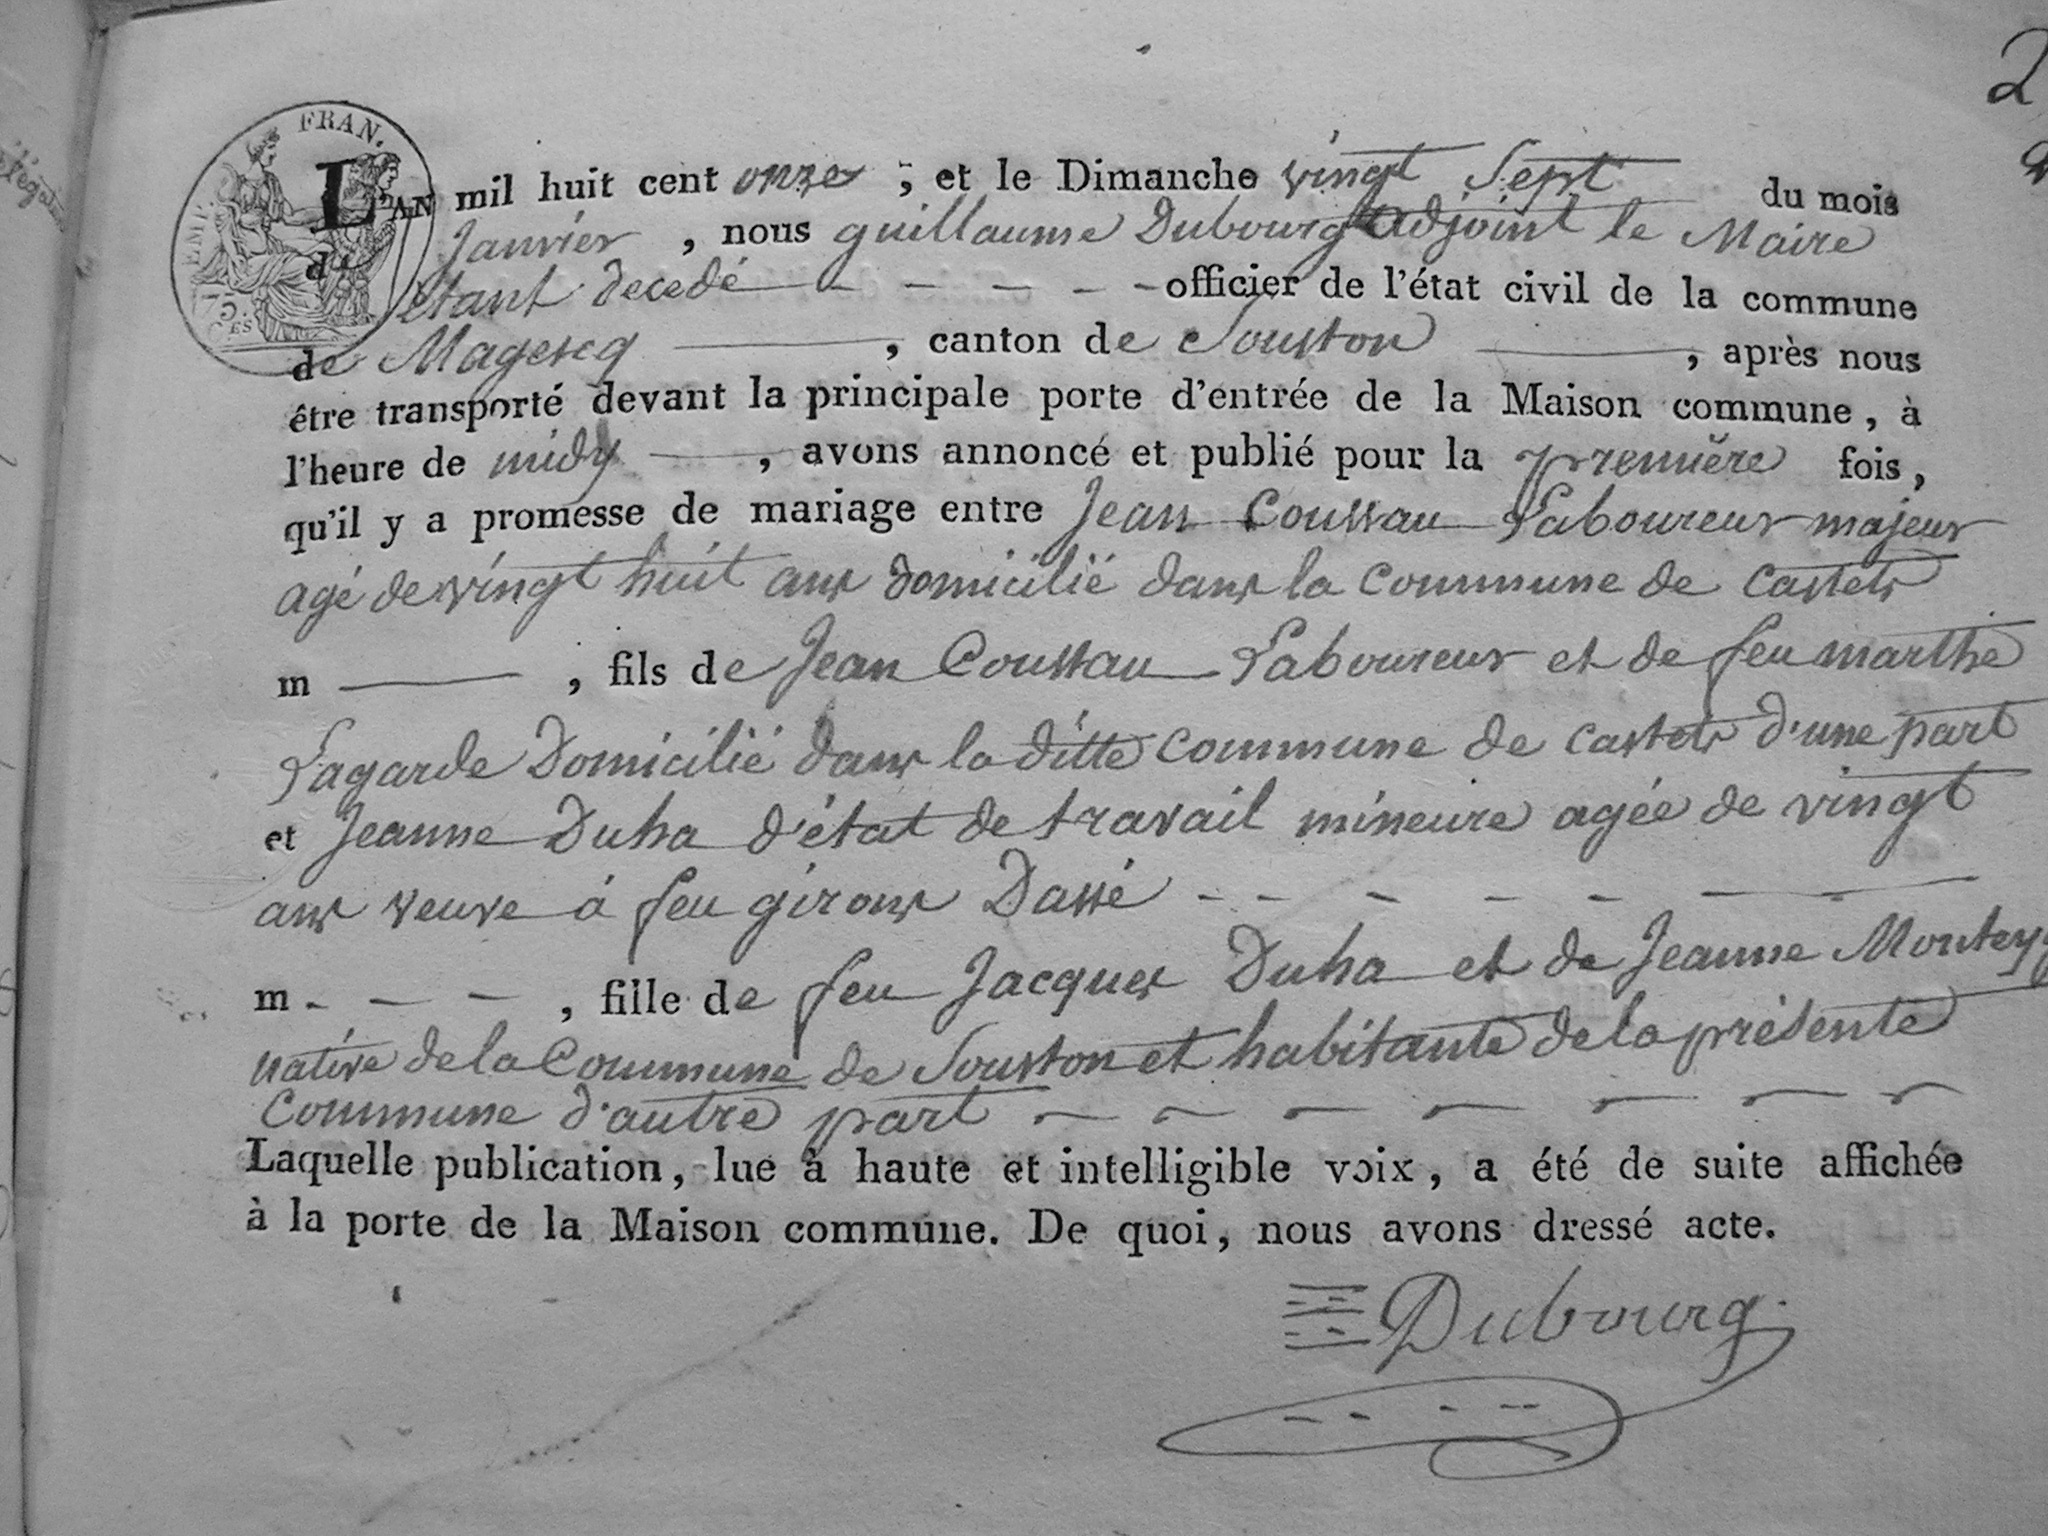 2
FRAN.
EMP.
75.
CES
L'AN mil huit cent onze ; et le Dimanche vingt Sept du mois
d' Janvier , nous guillaume Dubourg adjoint le Maire
étant decedé officier de l'état civil de la commune
de Magescq , canton de Souston , après nous
être transporté devant la principale porte d'entrée de la Maison commune, à
l'heure de midy , avons annoncé et publié pour la première fois,
qu'il y a promesse de mariage entre Jean Coussau Laboureur majeur
agé de vingt huit ans domicilié dans la Commune de Castets
m , fils de Jean Coussau Laboureur et de feu marthe
Lagarde Domicilié dans la ditte Commune de Castets d'une part
et Jeanne Duha d'état de travail mineure agée de vingt
ans veuve à feu girons Dassé
m , fille de feu Jacques Duha et de Jeanne
native de la Commune de Souston et habitante de la présente
Commune d'autre part
Laquelle publication, lue à haute et intelligible voix, a été de suite affichée
à la porte de la Maison commune. De quoi, nous avons dressé acte.
Dubourg